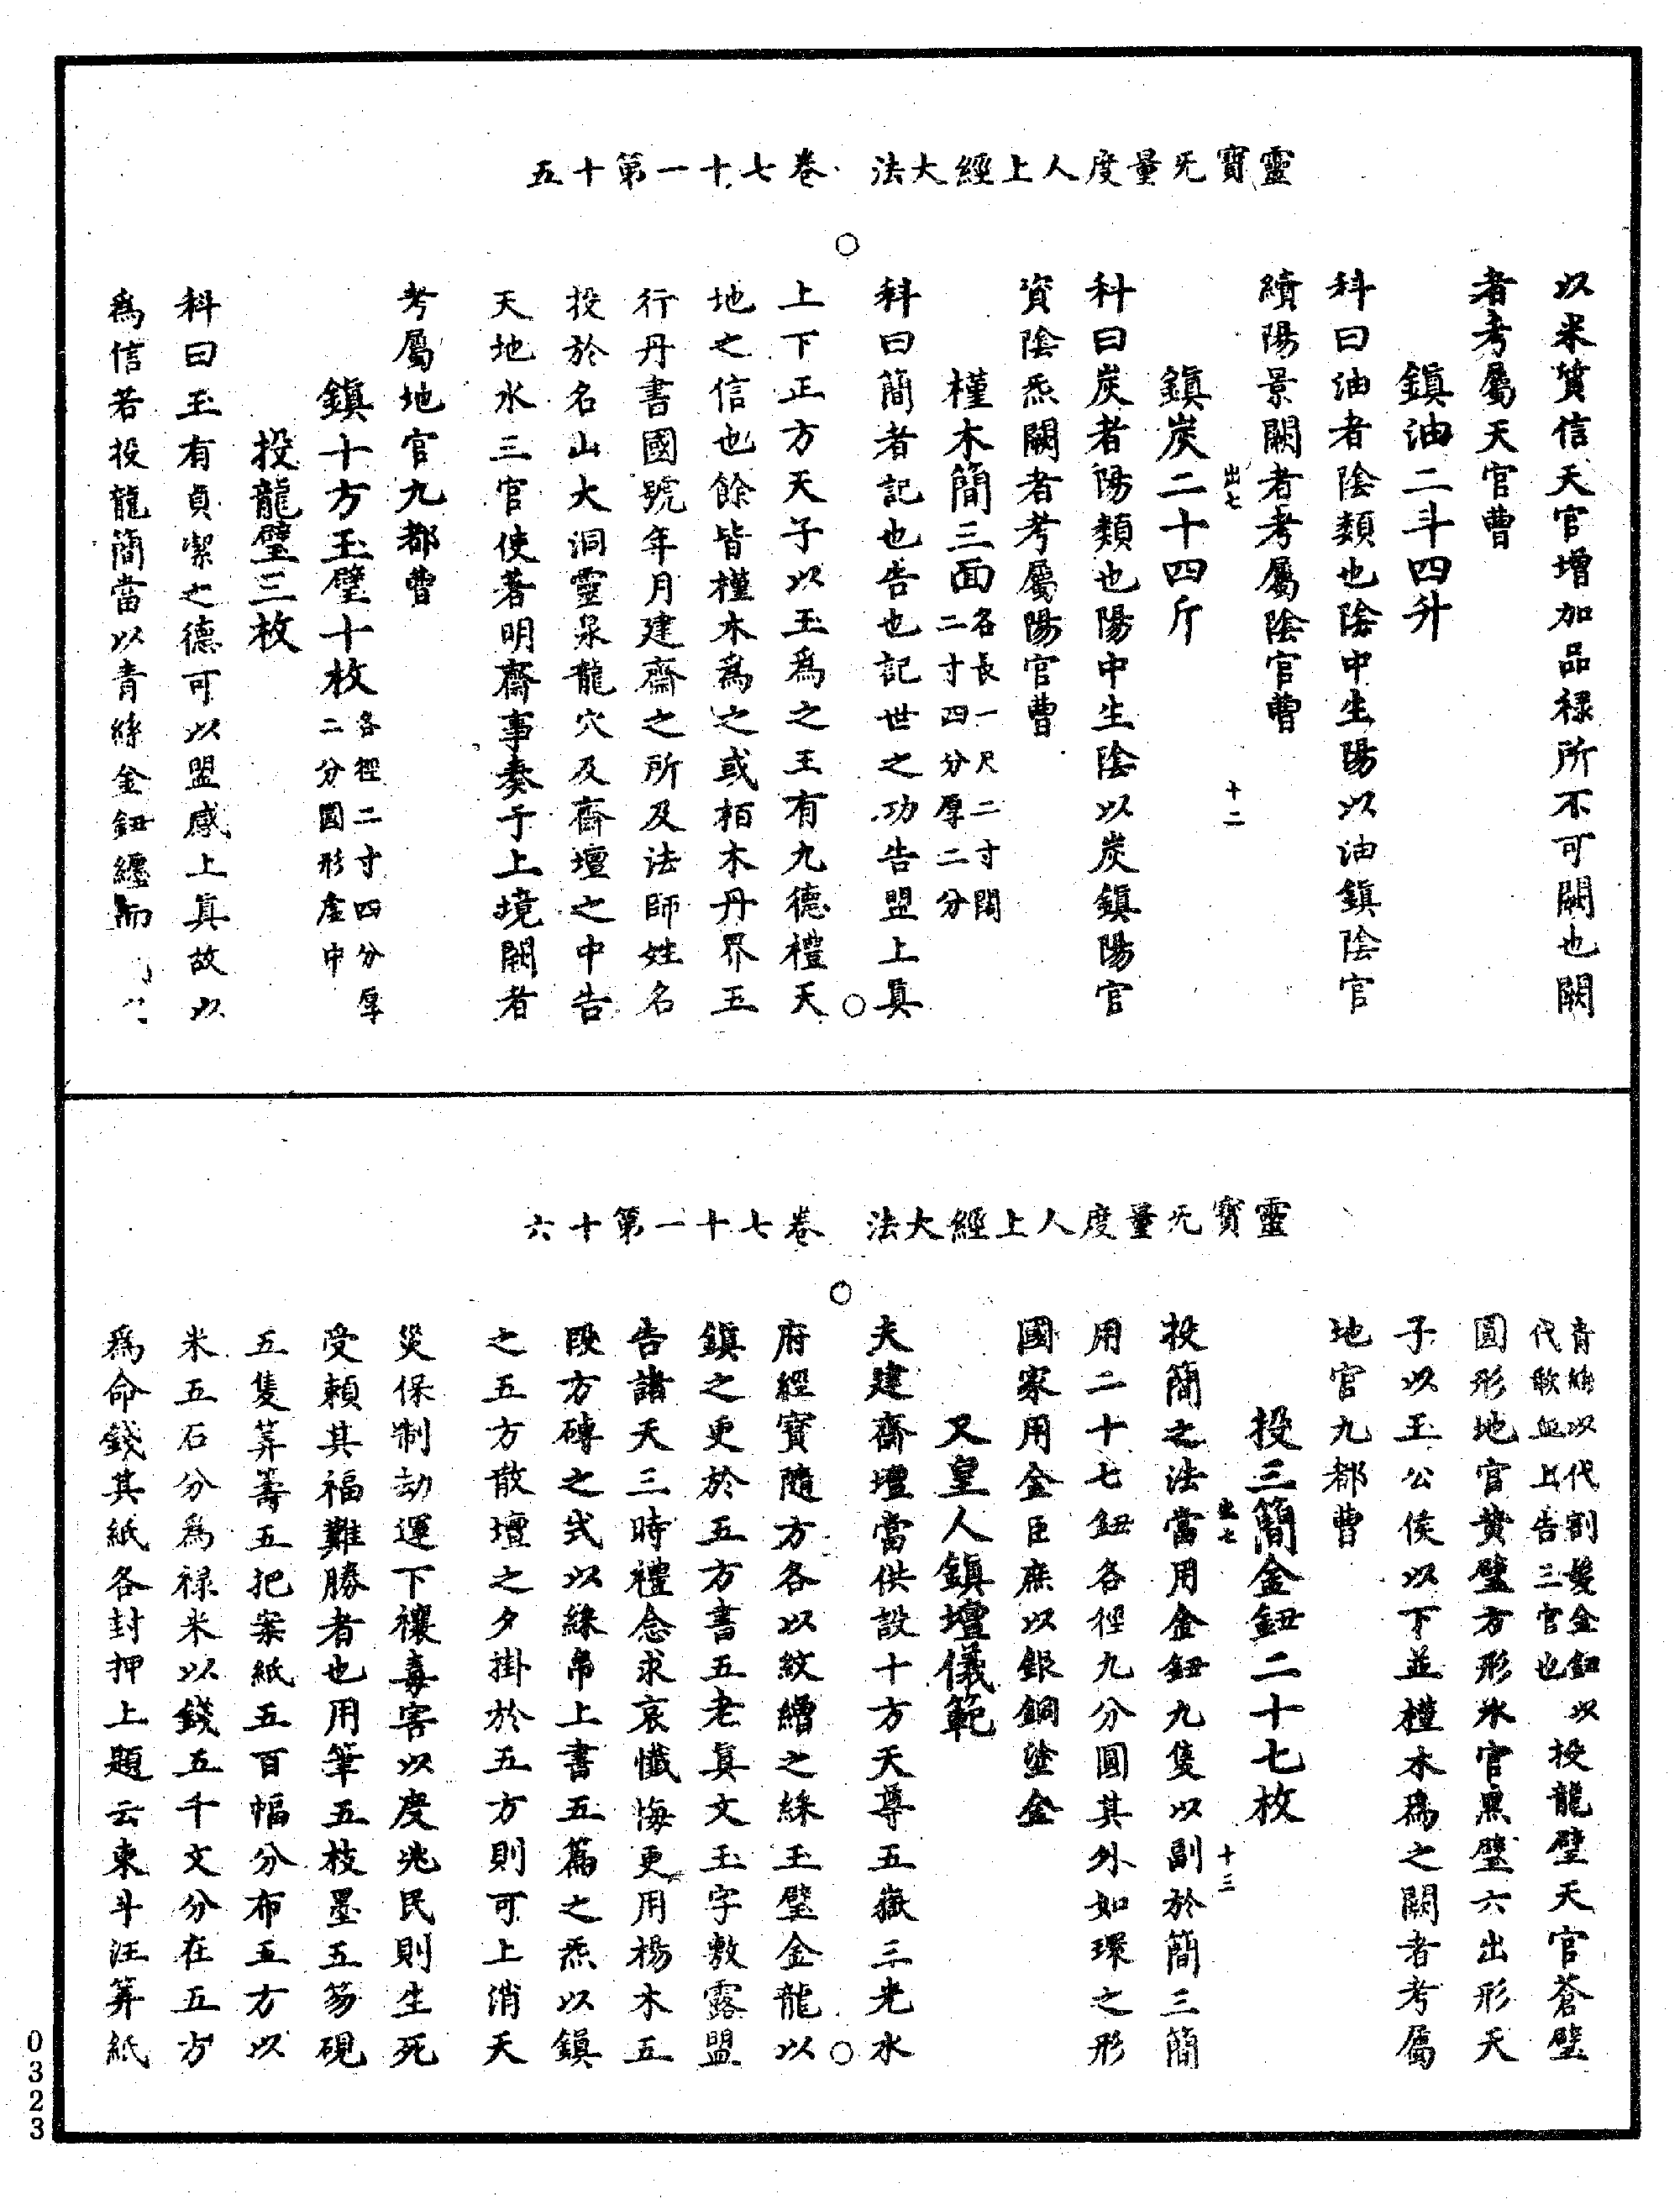 靈寶无量度人上經大法　卷七十一第十五
以米質信天官增加品祿所不可闕也闕
者考屬天官曹
鎮油二斗四升
科曰油者陰類也陰中生陽以油鎮陰官
續陽景闕者考屬陰官曹
出七　十二
鎮炭二十四斤
科曰炭者陽類也陽中生陰以炭鎮陽官
資陰炁闕者考屬陽官曹
槿木簡三面各長一尺二寸闊二寸四分厚二分
科曰簡者記也告也記世之功告盟上真
上下正方天子以玉為之玉有九德禮天
地之信也餘皆槿木為之或栢木丹界玉
行丹書國號年月建齋之所及法師姓名
投於名山大洞靈泉龍穴及齋壇之中告
天地水三官使著明齋事奏于上境闕者
考屬地官九都曹
鎮十方玉璧十枚各徑二寸四分厚二分圓形虛中
投龍璧三枚
科曰玉有貞潔之德可以盟感上真故以
為信若投龍簡當以青絲金鈕纏而
靈寶无量度人上經大法　卷七十一第十六
青絲以代割髮金鈕以代歃血上告三官也投龍璧天官蒼璧
圓形地官黄璧方形水官黑璧六出形天
子以玉公侯以下並槿木為之闕者考屬
地官九都曹
投三簡金鈕二十七枚
出七　十三
投簡之法當用金鈕九隻以副於簡三簡
用二十七鈕各徑九分圓其外如環之形
國家用金臣庶以銀銅塗金
又皇人鎮壇儀範
夫建齋壇當供設十方天尊五嶽三光水
府經寶隨方各以紋繒之綵玉璧金龍以
鎮之更於五方書五老真文玉字敷露盟
告諸天三時禮念求哀懺悔更用楊木五
段方磚之式以綵帛上書五篇之炁以鎮
之五方散壇之夕掛於五方則可上消天
災保制劫運下禳毒害以度兆民則生死
受賴其福難勝者也用筆五枝墨五笏硯
五隻筭籌五把案紙五百幅分布五方以
米五石分為祿米以錢五千文分在五方
為命錢其紙各封押上題云東斗注筭紙
0323